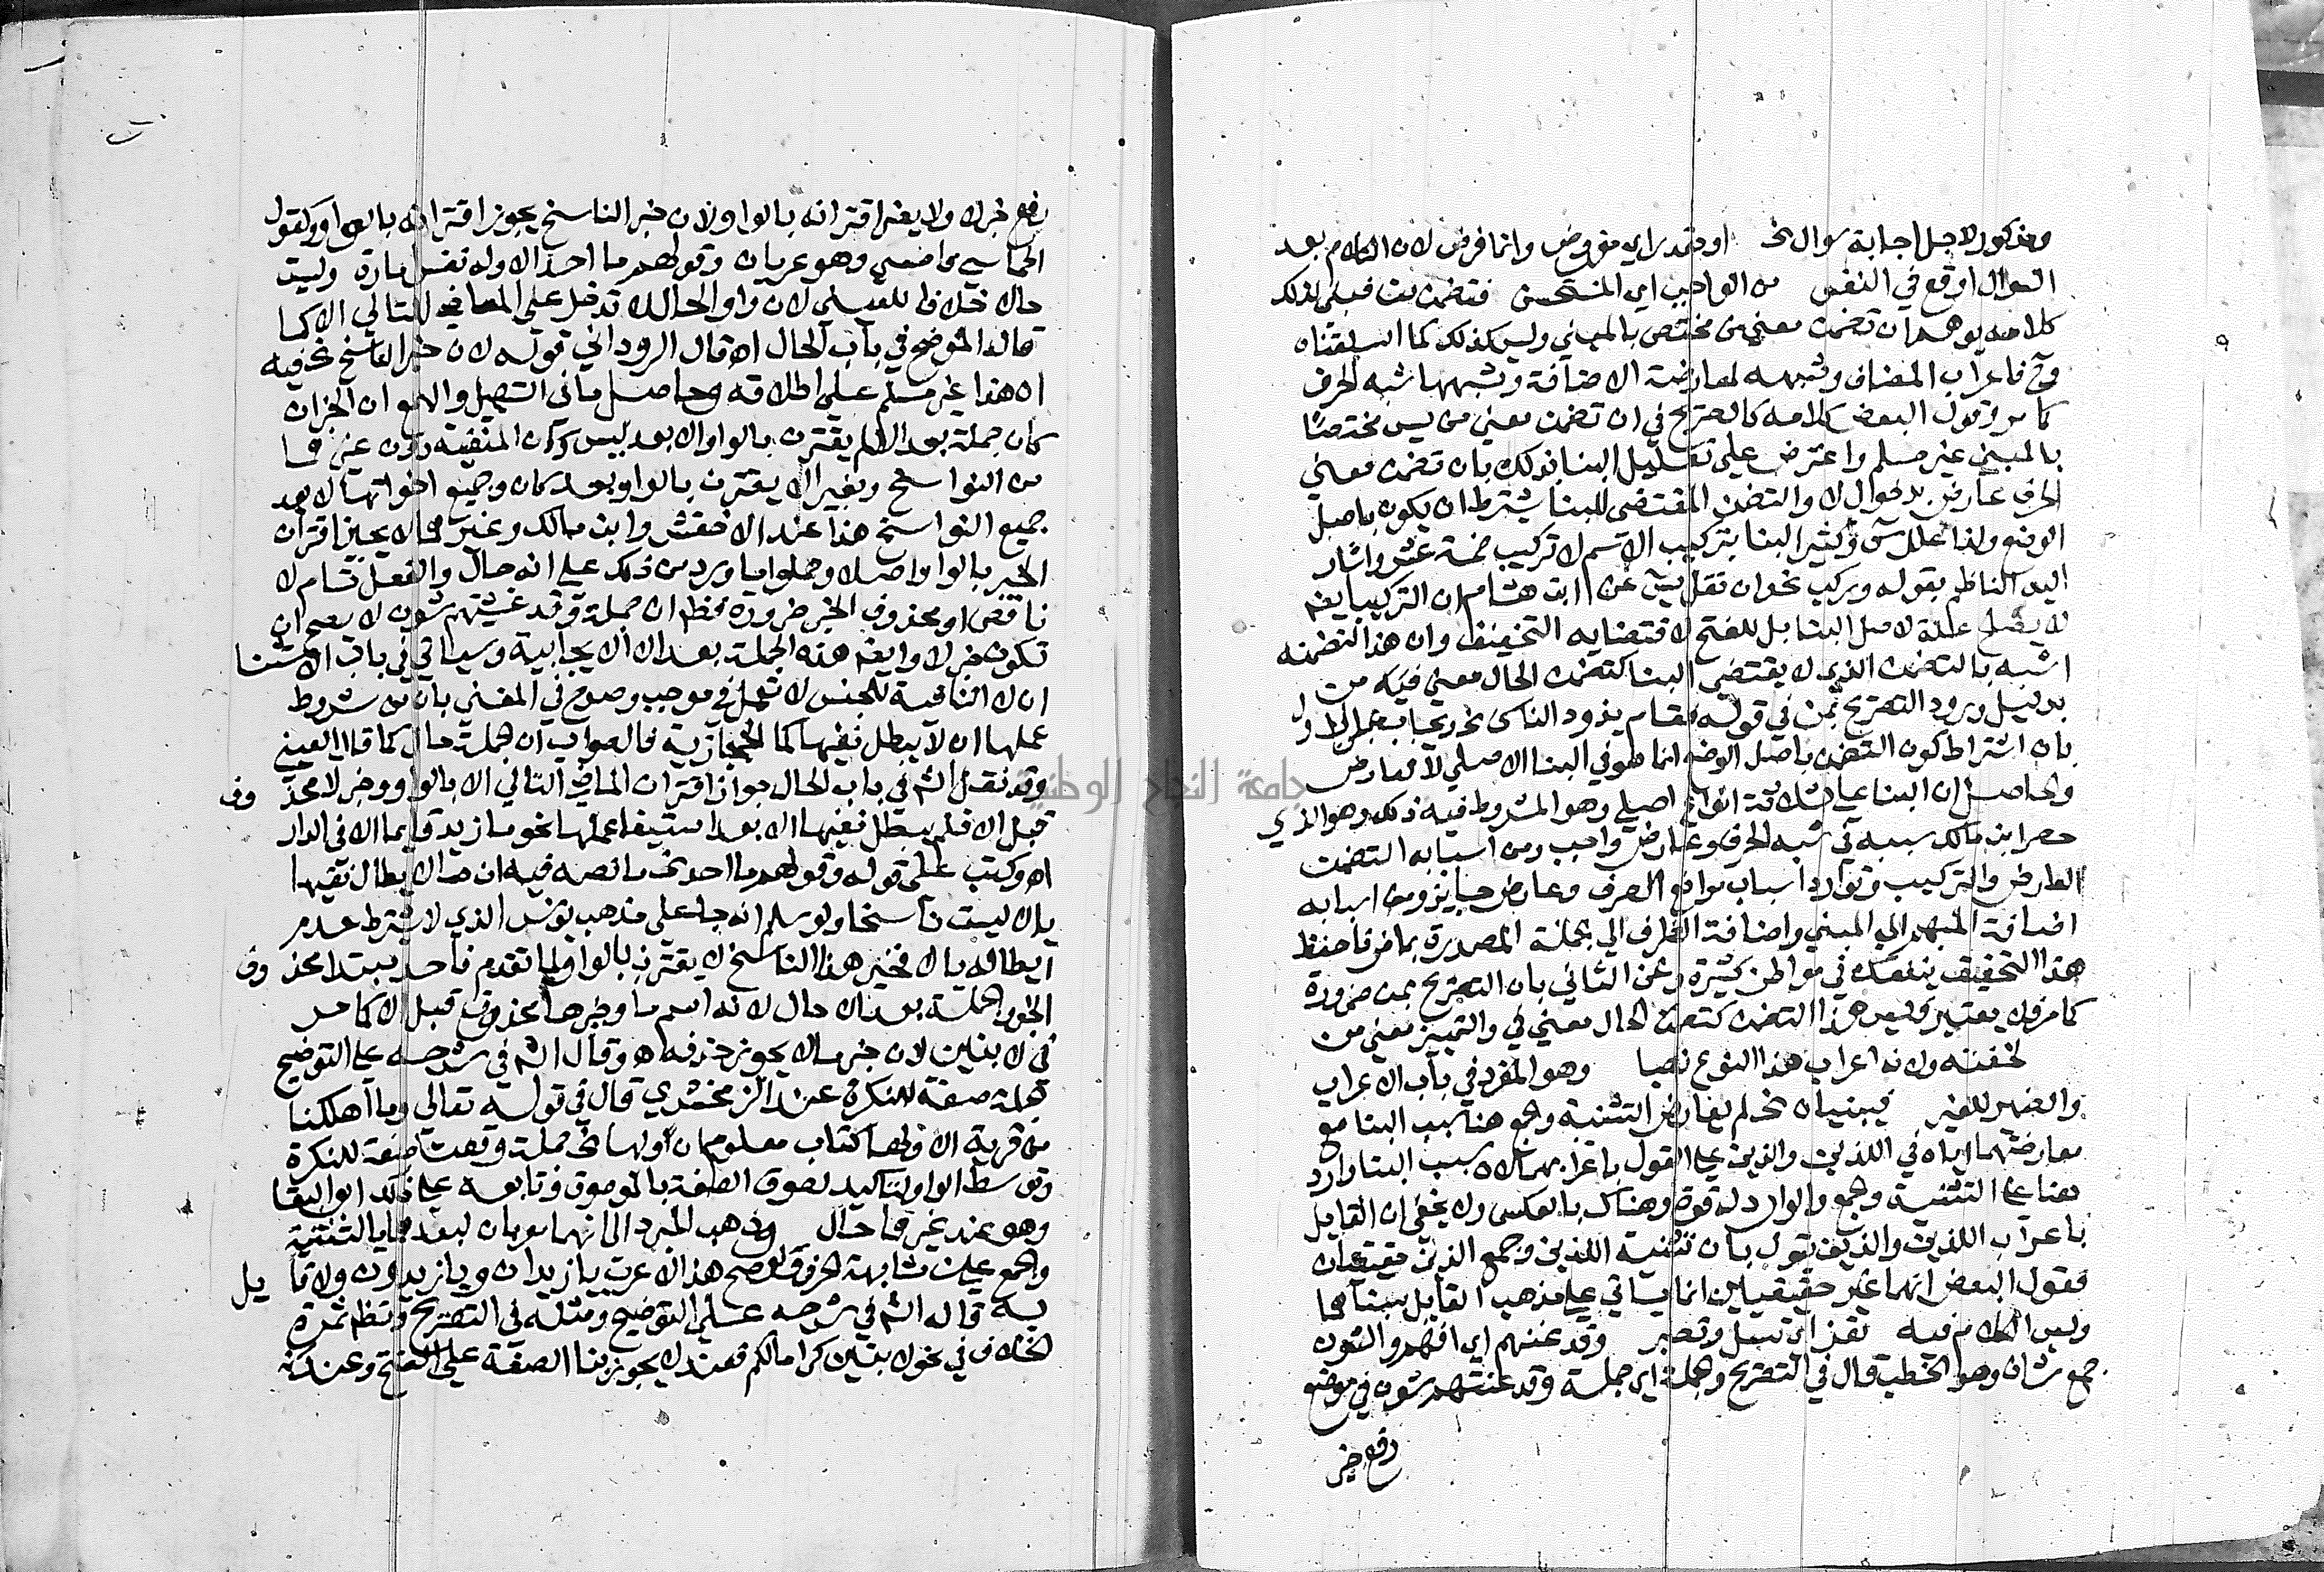 ومذكور لاجل اجابة سوال الخ او مقدر اي مفروض وانما فرض لان الكلام بعد
السوال اوقع في النفس من الواجب اي المستحسن فتضمنت من فبنى لذلك
كلامه يوهم ان تضمن معنى من مختص بالمبني وليس كذلك كما اسلفناه
وح فاعراب المضاف وشبهه لمعارضة الاضافة وشبهها شبه الحرف
كما مر وقول البعض كلامه كالصريح في ان تضمن معنى من ليس مختصا
بالمبني غير مسلم واعترض على تعليل البنا بذلك بان تضمن معنى
الحرف عارض بدخول لا والتضمن المقتضى للبنا يشترط ان يكون باصل
الوضع ولذا علل س وكثير البنا بتركيب الاسم لا تركيب خمسة عشر واشار
اليه الناظم بقوله وركب نحو ان نقل يس عن ابن هشام ان التركيب يفم
لا يصلح علة لاصل البنا بل للفتح لاقتضايه التخفيف وان هذا التضمنه
اشبه بالتضمن الذي لا يقتضي البنا كتضمن الحال معنى في
بدليل ورود التصريح بمن في قوله فقام يذود الناس الخ ويجاب عن الاول
بان اشتراط كون التضمن باصل الوضع انما هو في البنا الاصلي لا العارض
والحاصل ان البنا على ثلاثة انواع اصلي وهو المشروط فيه ذلك وهو الذي
حصر ابن مالك سببه في شبه الحرف وعارض واجب ومن اسبابه التضمن
العارض والتركيب وتوارد اسباب موانع الصرف وعارض جايز ومن اسبابه
اضافة المبهم الى المبني واضافة الظرف الى الجملة المصدرة بماض فاحفظ
هذا التحقيق ينفعك في مواطن كثيرة وعن الثاني بان التصريح بمن ضرورة
كما مر فلا يعتبر وليس هذا التضمن كتضمن الحال معنى في والتمييز معنى من
لخفته ولانه اعراب هذا النوع نصبا وهو المفرد في باب الاعراب
والضمير للغير فيبنيان الخ لم يعارض التثنية والجمع هنا سبب البنا مع
معارضتهما اياه في اللذين والذين على القول باعرابهما لان سبب البنا وارد
هنا على التثنية والجمع والوارد له قوة وهناك بالعكس ولا يخفى ان القايل
باعراب اللذين والذين يقول بان تثنية اللذين وجمع الذين حقيقيان
فقول البعض انهما غير حقيقيين انما ياتي على مذهب القايل ببنايهما
وليس الكلام فيه تعز اي تسل وتصبر وقد عنتهم اي اهمهم والشون
جمع شان وهو الخطب قال في التصريح وجملة اي جملة وقد عنتهم شون في موضع
رفع خبر
رفع خبر لا ولا يضر اقترانه بالواو لان خبر الناسخ يجوز اقترانه بالواو كقول
الحماسي فامسى وهو عريان وقولهم ما احد الا وله نفس امارة وليست
حالا خلافا للعيني لان واو الحال لا تدخل على الماضي التالي الا كما
قاله الموضح في باب الحال اه قال الروداني قوله لان خبر الناسخ الخ فيه
ان هذا غير مسلم على اطلاقه وحاصل ما في التسهيل والهمع ان الخبر ان
كان جملة بعد الا لم يقترن بالواو الا بعد ليس وكان المنفية دون غيرهما
من النواسخ وبغير الا يقترن بالواو بعد كان وجميع اخواتها لا بعد
جميع النواسخ هذا عند الاخفش وابن مالك وغيرهما لا يجيز اقتران
الخبر بالواو اصلا وحملوا ما ورد من ذلك على انه حال والفعل تام لا
ناقص او محذوف الخبر ضرورة فظهر ان جملة وقد عنتهم شون لا يصح ان
تكون خبر لا وايضا هذه الجملة بعد الا الايجابية وسياتي في باب الاستثنا
ان لا النافية للجنس لا تعمل في موجب وصرح في المغني بان من شروط
عملها ان لا يبطل نفيها كما الحجازية فالصواب ان الجملة حال كما قال العيني
وقد نقل الشم في باب الحال جواز اقتران الماضي التالي الا بالواو وخبر لا محذوف
قبل الا فلم يبطل نفيها الا بعد استيفا عملها نحو ما زيد قايما الا في الدار
اه وكتب على قوله وقولهم ما احد الخ ما نصه فيه ان ما لابطال نفيها
بالا ليست ناسخا ولو سلم انه جا على مذهب يونس الذي لا يشترط عدم
ابطاله بالا فخبر هذا الناسخ لا يقترن بالواو لما تقدم فاحد مبتدا محذوف
الخبر والجملة بعد الا حال لانه اسم ما وخبرها محذوف قبل الا كما مر
في لا بنين لان خبر ما لا يجوز حذفه اه وقال الشم في شرحه على التوضيح
الجملة صفة للنكرة عند الزمخشري قال في قوله تعالى وما اهلكنا
من قرية الا ولها كتاب معلوم ان ولها الخ جملة وقعت صفة للنكرة
وتوسط الواو لتاكيد لصوق الصفة بالموصوف وتابعه على ذلك ابو البقا
وهو عند غيرهما حال وذهب المبرد الى انهما معربان لبعدهما بالتثنية
والجمع عن مشابهة الحرف ولو صح هذا لاعرب يا زيدان ويا زيدون ولا قايل
به قاله الشم في شرحه على التوضيح ومثله في التصريح وتظهر ثمرة
الخلاف في نحو لا بنين كراما لكم فعنده لا يجوز بنا الصفة على الفتح وعندنا
جامعة النجاح الوطنية